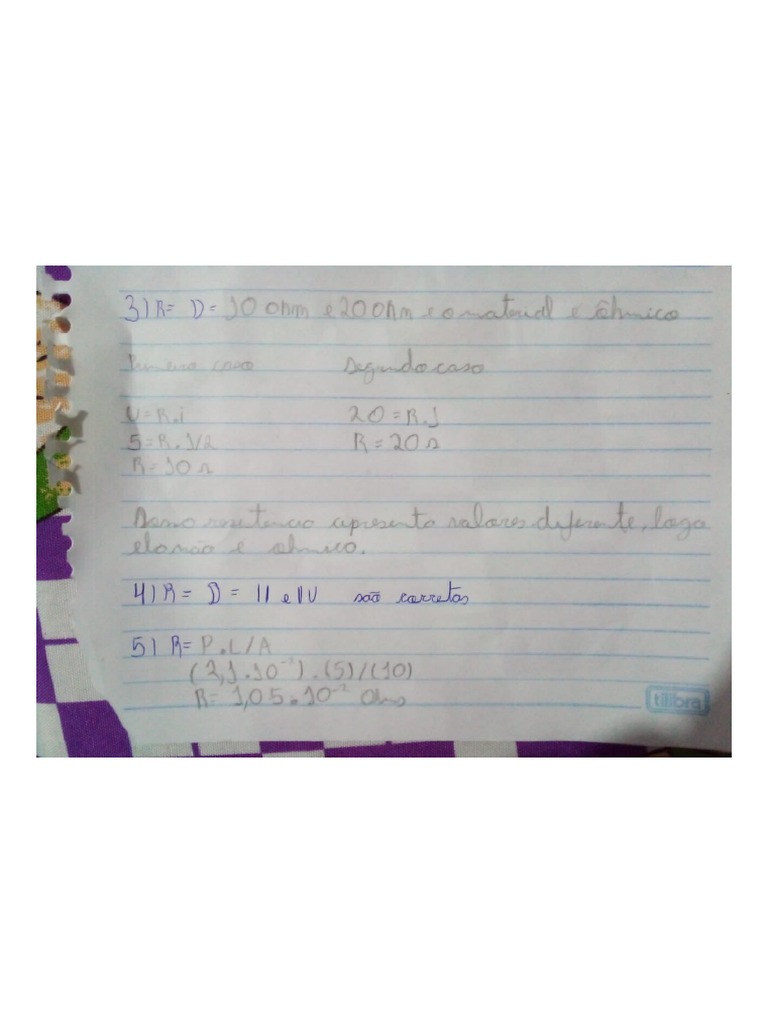 3) R= D= 10 ohm e 20 ohm e o material e ôhmico
Primeiro caso Segundo caso
U=R.i 20=R.1
5=R.1/2 R=20Ω
R=10Ω
Como resistencia apresenta valores diferente, logo
ela não e ohmico.
4) R= D= II e IV são corretas
5) R= P.L/A
(2,1.10⁻²).(5)/(10)
R= 1,05.10⁻² Ohms
tilibra